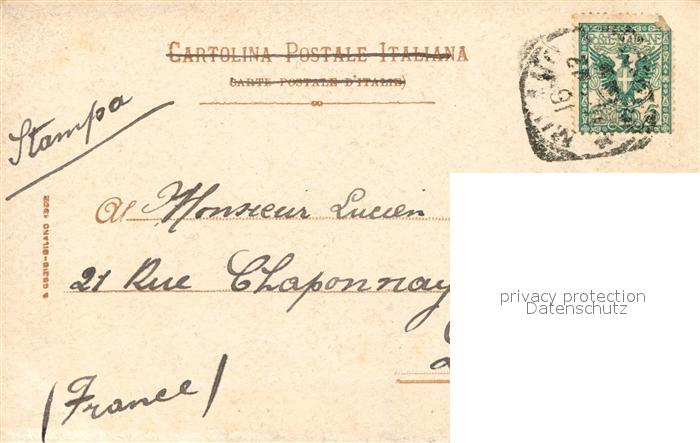 Cartolina Postale Italiana
(Carte Postale d'Italie)
Stampa
Al Monsieur Lucien
21 Rue Chaponnay
(France)
privacy protection
Datenschutz